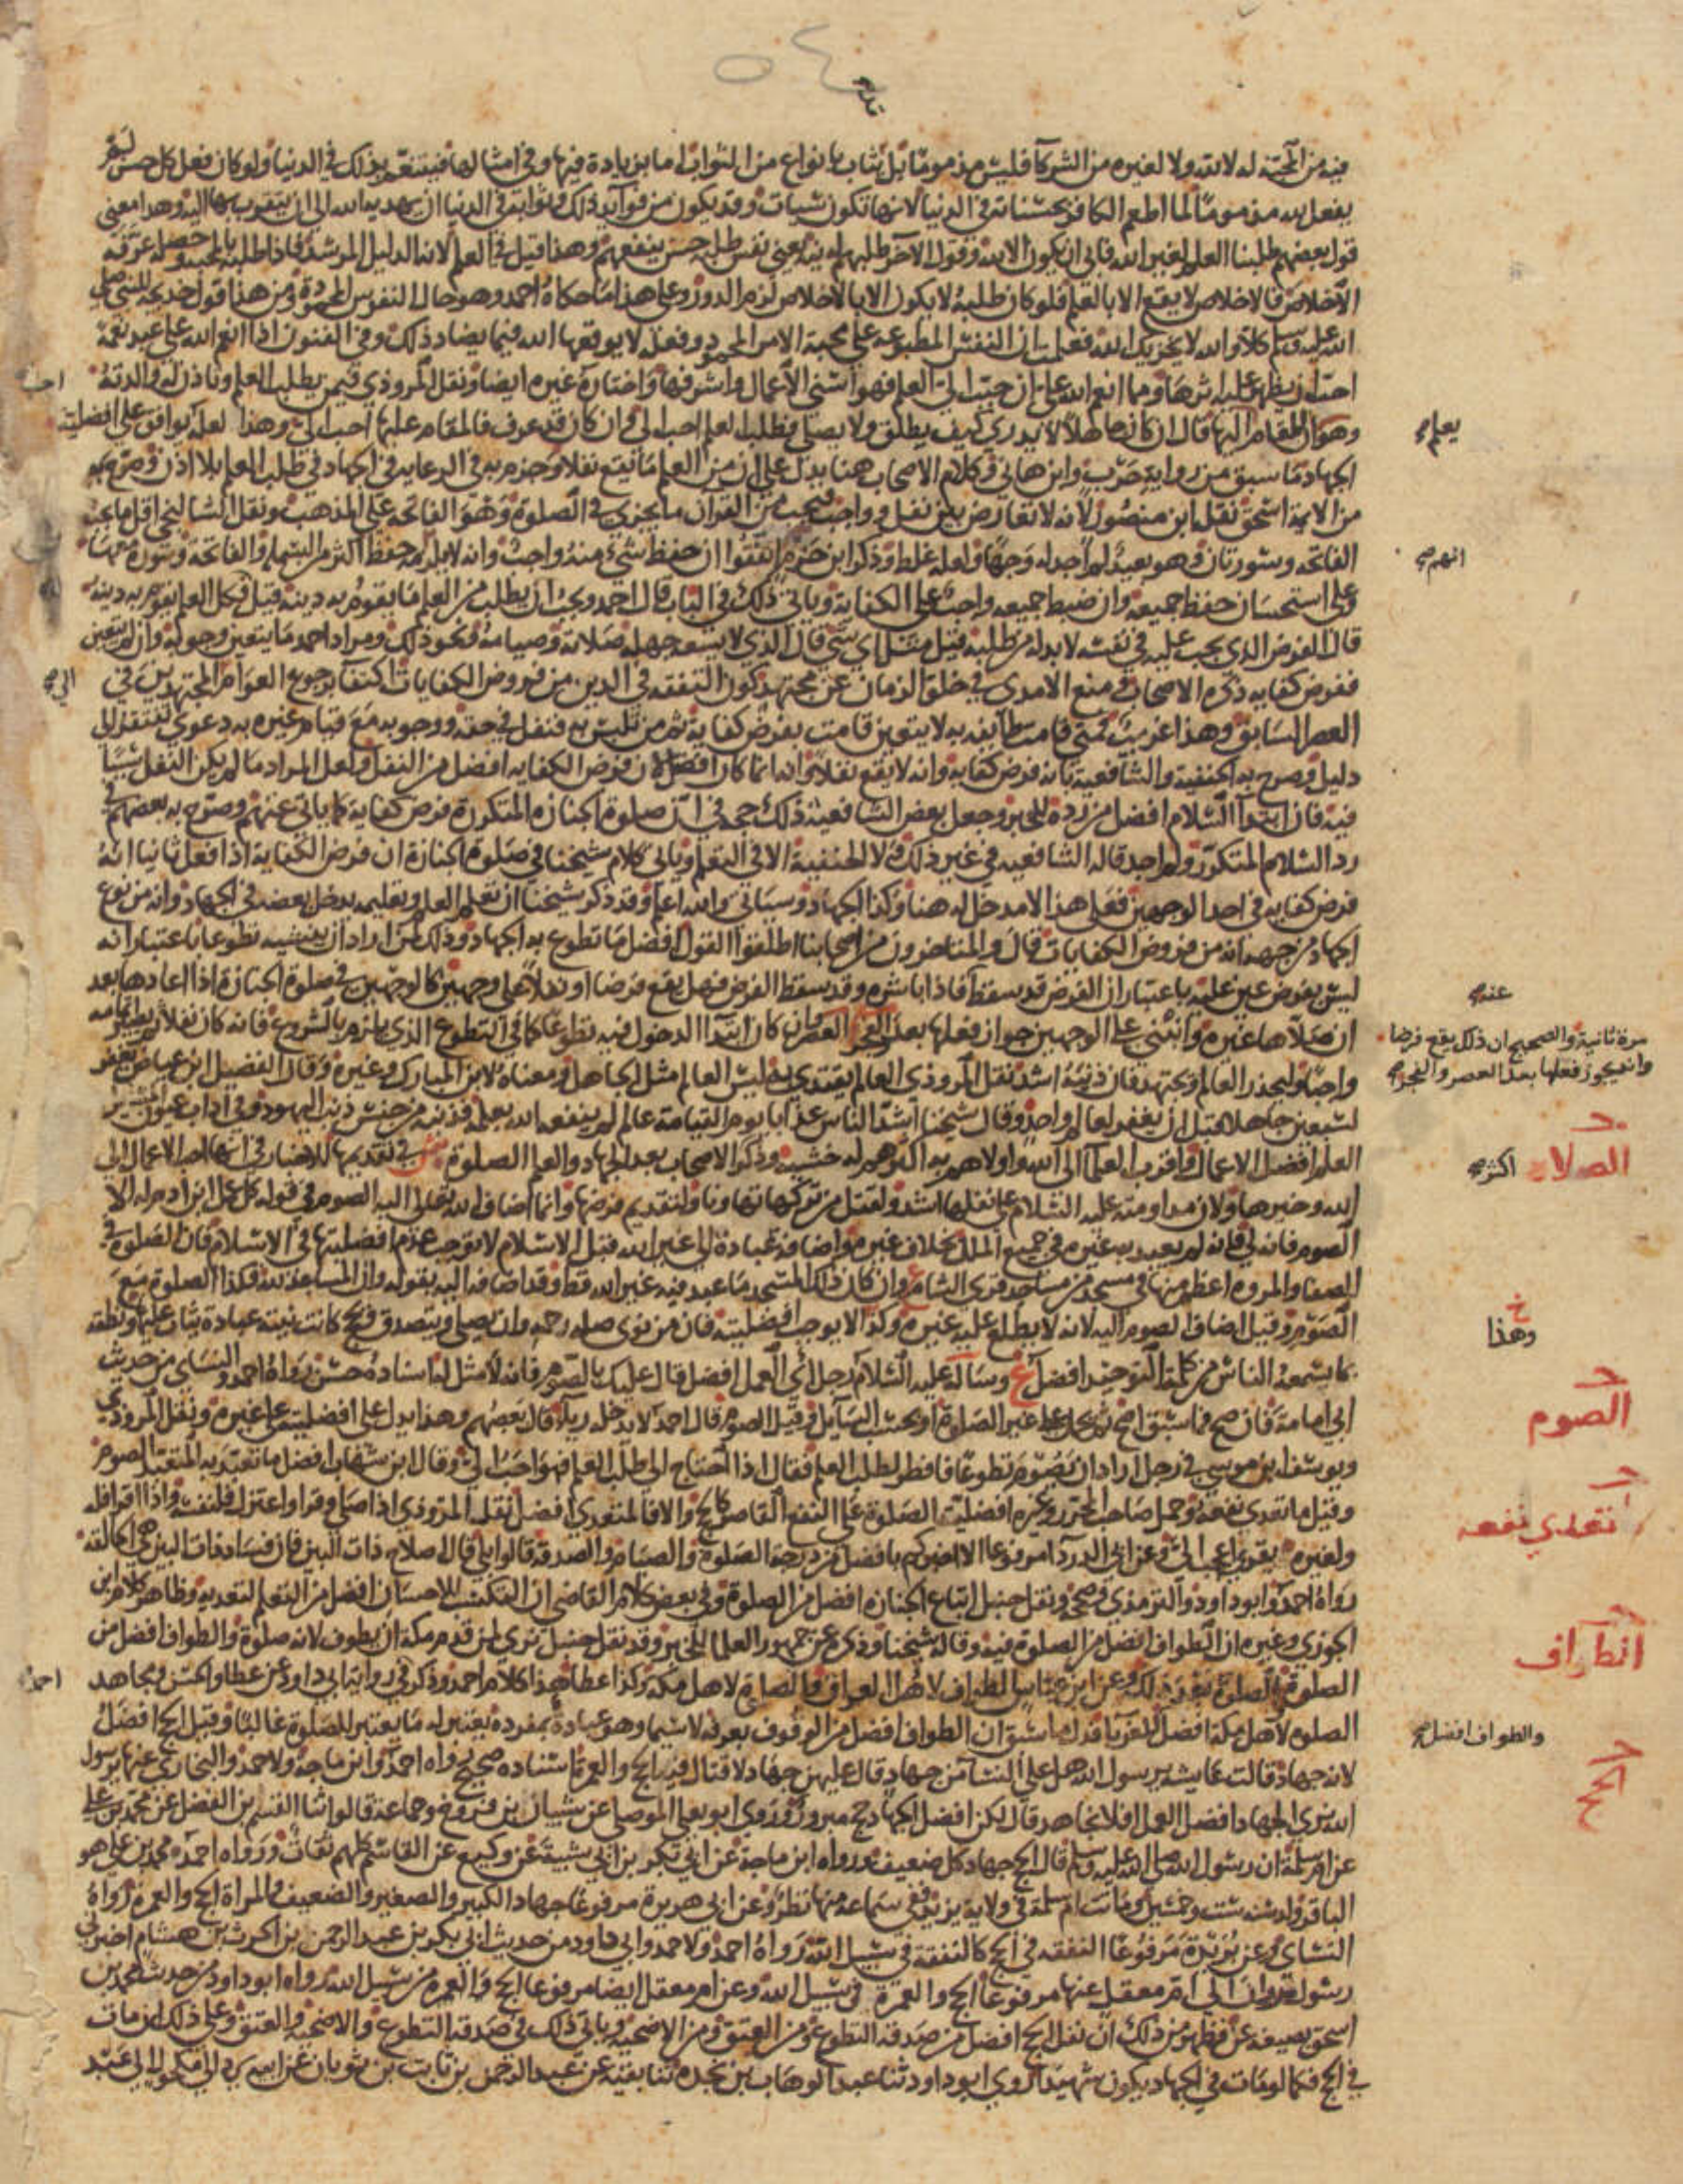 ٥٤
فيه من المحبة له لا لله ولا لغيره من الشركآ فليس مذموما بل يثاب بانواع من الثواب اما بزيادة فيها وفي امثالها فيتنعم بذلك في الدنيا ولو كان فعل كل حسن لم
يفعل لله مذموما لما اطعم الكافر بحسناته في الدنيا لانها تكون سيئات وقد يكون من فوآيد ذلك وثوابه في الدنيا ان يهديه الله الى ان يتقرب بها اليه وهذا معنى
قول بعضهم طلبنا العلم لغير الله فابى ان يكون الا لله وقول الآخر طلبهم له نية يعني نفس طلبه حسن ينفعهم وهذا قيل في العلم لانه الدليل المرشد فاذا طلبه بالمحبة وحصله عرفه
الاخلاص فالاخلاص لا يقع الا بالعلم فلو كان طلبه لا يكون الا بالاخلاص لزم الدور وعلى هذا ما حكاه احمد وهو حال النفوس المحمودة ومن هذا قول خديجة للنبي صلى
الله عليه وسلم كلا والله لا يخزيك الله فعلمت ان النفس المطبوعة على محبة الامر المحمود وفعله لا يوقعها الله فيما يضاد ذلك وفي الفنون اذا انعم الله على عبد نعمة
احب ان يظهر عليه اثرها ومما انعم الله علي ان حبب الي العلم فهو اسنى الاعمال واشرفها واختاره غيره ايضا ونقل المروذي فيمن يطلب العلم وتاذن له والدته
وهو المقام اليها قال ان كان جاهلا لا يدري كيف يطلق ولا يصلي فطلب العلم احب الي وان كان قد عرف فالمقام عليها احب الي وهذا لعله يوافق على افضلية
يعلم صح
الجهاد ما سبق من رواية حرب وابن هاني وكلام الاصحاب هنا يدل على ان من العلم ما يقع نفلا وجزم به في الرعاية في الجهاد في طلب العلم بلا اذن وصرح به
من الايمة اسحق نقله ابن منصور لانه لا تعارض بين نفل وواجب ويجب من القرآن ما يجزي في الصلوة وهو الفاتحة على المذهب ونقل الشالنجي اقل ما يجب
الفاتحة وسورتان وهو بعيد لم اجد له وجها ولعله غلط وذكر ابن حزم اتفقوا ان حفظ شي منه واجب وانه لا يلزمه حفظ اكثر من البسملة والفاتحة وسورة معها
انهم صح
وعلى استحسان حفظ جميعه وان ضبط جميعه واجب على الكفاية وياتي ذلك في الباب قال احمد ويجب ان يطلب من العلم ما يقوم به دينه قيل فكل العلم يقوم به دينه
قال الفرض الذي يجب عليه في نفسه لا بد له من طلبه قيل مثل اي شي قال الذي لا يسعه جهله صلاته وصيامه ونحو ذلك ومراد احمد ما يتعين وجوبه وان لم يتعين
ففرض كفاية ذكره الاصحاب ومنع الامدي في خلو الزمان عن مجتهد كون التفقه في الدين من فروض الكفايات اكتفآ برجوع العوام المجتهدين في
الى صح
العصر السابق وهذا غريب فمتى قامت طايفة به لا يتعين قامت بفرض كفاية ثم من تلبس به فنفل في حقه ووجوبه مع قيام غيره به دعوى تفتقر الى
دليل وصرح به الحنفية والشافعية بانه فرض كفاية وانه لا يقع نفلا وانه انما كان افضل لان فرض الكفاية افضل من النفل ولعل المراد ما لم يكن النفل سببا
فيه فان ابتدآ السلام افضل من رده للخبر وجعل بعض الشافعية ذلك حجة في ان صلوة الجنازة المتكررة فرض كفاية كما ياتي عنهم وصرح به بعضهم في
رد السلام المتكرر ولم اجد قاله الشافعية في غير ذلك ولا الحنفية الا في التعلم وياتي كلام شيخنا في صلوة الجنازة ان فرض الكفاية اذا فعل ثانيا انه
فرض كفاية في احد الوجهين فعلى هذا الامدخل له هنا وكذا الجهاد وسياتي والله اعلم وقد ذكر شيخنا ان تعلم العلم وتعليمه يدخل بعضه في الجهاد وانه من نوع
الجهاد من جهة انه من فروض الكفايات قال والمتاخرون من اصحابنا اطلقوا القول افضل ما تطوع به الجهاد وذلك لمن اراد ان ينشيه تطوعا باعتبار انه
ليس بفرض عين عليه باعتبار ان الفرض قد سقط فاذا باشره وقد سقط الفرض فهل يقع فرضا او نفلا على وجهين كالوجهين في صلوة الجنازة اذا اعادها بعد
ان صلاها غيره وانبنى على الوجهين جواز فعلها بعد الفجر والعصر وان كان ابتدآ الدخول فيه تطوعا كما في التطوع الذي يلزم بالشروع فانه كان نفلا ثم يصير اتمامه
عنه صح
مرة ثانية والصحيح ان ذلك يقع فرضا
وانه يجوز فعلها بعد العصر والفجر صح
واجبا وليحذر العالم ويجتهد فان ذنبه اشد نقل المروذي العالم يقتدى به ليس العالم مثل الجاهل ومعناه لابن المبارك وغيره وقال الفضيل ابن عياض يغفر
لسبعين جاهلا قبل ان يغفر لعالم واحد وقال شيخنا اشد الناس عذابا يوم القيامة عالم لم ينفعه الله بعلمه فذنبه من جنس ذنب اليهود وفي اداب عيون المسايل
العلم افضل الاعمال واقرب العلمآ الى الله واولاهم به اكثرهم له خشية وذكر الاصحاب بعد الجهاد والعلم الصلوة في تقديمها للاخبار في انها احب الاعمال الى
الصلاة
اكثر صح
الله وخيرها ولان مداومته عليه السلام على نفلها اشد ولقتل من تركها تهاونا ولتقديم فرضها وانما اضاف الله تعالى اليه الصوم في قوله كل عمل ابن ادم له الا
الصوم فانه لي فانه لم يعبد به غيره في جميع الملل بخلاف غيره واضافة عبادة الى غير الله قبل الاسلام لا توجب عدم افضليتها في الاسلام فان الصلوة في
الصفا والمروة اعظم منها في مسجد من مساجد قرى الشام وان كان ذلك المسجد ما عبد فيه غير الله قط وقد اضافه اليه بقوله وان المساجد لله فكذا الصلوة مع
الصوم وقيل اضاف الصوم اليه لانه لا يطلع عليه غيره وكذا لا يوجب افضليته فان من نوى صلة رحمه وان يصلي ويتصدق ويحج كانت نيته عبادة يثاب عليها ونطقه
وهذا
بما يسمعه الناس من كلمة التوحيد افضل وساله عليه السلام رجل اي العمل افضل قال عليك بالصوم فانه لا مثل له اسناده حسن رواه احمد والنساي من حديث
الصوم
ابي امامة فان صح فما سبق اصح ثم يحمل على غير الصلوة او بحسب السايل وقيل الصوم قال احمد لا يدخله ريآ قال بعضهم وهذا يدل على افضليته على غيره ونقل المروذي
ويوسف ابن موسى في رجل اراد ان يصوم تطوعا فافطر لطلب العلم فقال اذا احتاج الى طلب العلم فهو احب الي وقال ابن شهاب افضل ما تعبد به المتعبد الصوم
وقيل ما تعدى نفعه وحمل صاحب المحرر وغيره افضلية الصلوة على النفع القاصر كالحج والا فالمتعدي افضل نقله المروذي اذا صلى وقرا واعتزل فلنفسه واذا اقرا فله
تعدي نفعه
ولغيره يقري اعجب الي وعن ابي الدردآ مرفوعا الا اخبركم بافضل من درجة الصلوة والصيام والصدقة قالوا بلى قال اصلاح ذات البين فان فساد ذات البين هي الحالقة
رواه احمد وابو داود والترمذي وصححه ونقل حنبل اتباع الجنازة افضل من الصلوة وفي بعض كلام القاضي ان التكسب للاحسان افضل من التعلم لتعديه وظاهر كلام ابن
الجوزي وغيره ان الطواف افضل من الصلوة فيه وقاله شيخنا وذكره عن جمهور العلما للخبر وقد نقل حنبل نرى لمن قدم مكة ان يطوف لانه صلوة والطواف افضل من
الطواف
الصلوة والصلوة بعد ذلك وعن ابن عباس الطواف لاهل العراق والصلوة لاهل مكة وكذا عطا هذا كلام احمد وذكر في رواية ابي داود عن عطا والحسن ومجاهد
احمد
الصلوة لاهل مكة افضل للغربآ فدل ما سبق ان الطواف افضل من الوقوف بعرفة لاسيما وهو عبادة بمفرده يعتبر له ما يعتبر للصلوة غالبا وقيل الحج افضل
والطواف افضل صح
الحج
لانه جهاد قالت عايشة يرسول الله هل على النسآ من جهاد قال عليهن جهاد لا قتال فيه الحج والعمرة اسناده صحيح رواه احمد وابن ماجة ولاحمد والبخاري عنها يرسول
الله نرى الجهاد افضل العمل افلا نجاهد قال لكن افضل الجهاد حج مبرور وروى ابو يعلى الموصلي عن شيبان بن فروخ وجماعة قالوا ثنا القسم بن الفضل عن محمد بن علي
عن ام سلمة ان رسول الله صلى الله عليه وسلم قال الحج جهاد كل ضعيف ورواه ابن ماجة عن ابي بكر بن ابي شيبة عن وكيع عن القاسم كلهم ثقات ورواه احمد ومحمد بن علي هو
الباقر ولد سنة ست وخمسين وماتت ام سلمة في ولاية يزيد ففي سماعه منها نظر وعن ابي هريرة مرفوعا جهاد الكبير والصغير والضعيف والمراة الحج والعمرة رواه
النساي وعن بريدة مرفوعا النفقة في الحج كالنفقة في سبيل الله رواه احمد ولاحمد وابي داود من حديث ابي بكر بن عبد الرحمن بن الحرث بن هشام اخبرني
رسول مروان الى ام معقل عنها مرفوعا الحج والعمرة في سبيل الله وعن ام معقل ايضا مرفوعا الحج والعمرة من سبيل الله رواه ابو داود من حديث محمد بن
اسحق بصيغة عن فظهر من ذلك ان نفل الحج افضل من صدقة التطوع ومن العتق ومن الاضحية وياتي ذلك في صدقة التطوع والاضحية والعتق وعلى ذلك ان مات
في الحج فكما لو مات في الجهاد يكون شهيدا وروى ابو داود ثنا عبد الوهاب بن نجدة ثنا بقية عن عبد الرحمن بن ثابت بن ثوبان عن ابيه يرد الى مكحول الى عبد